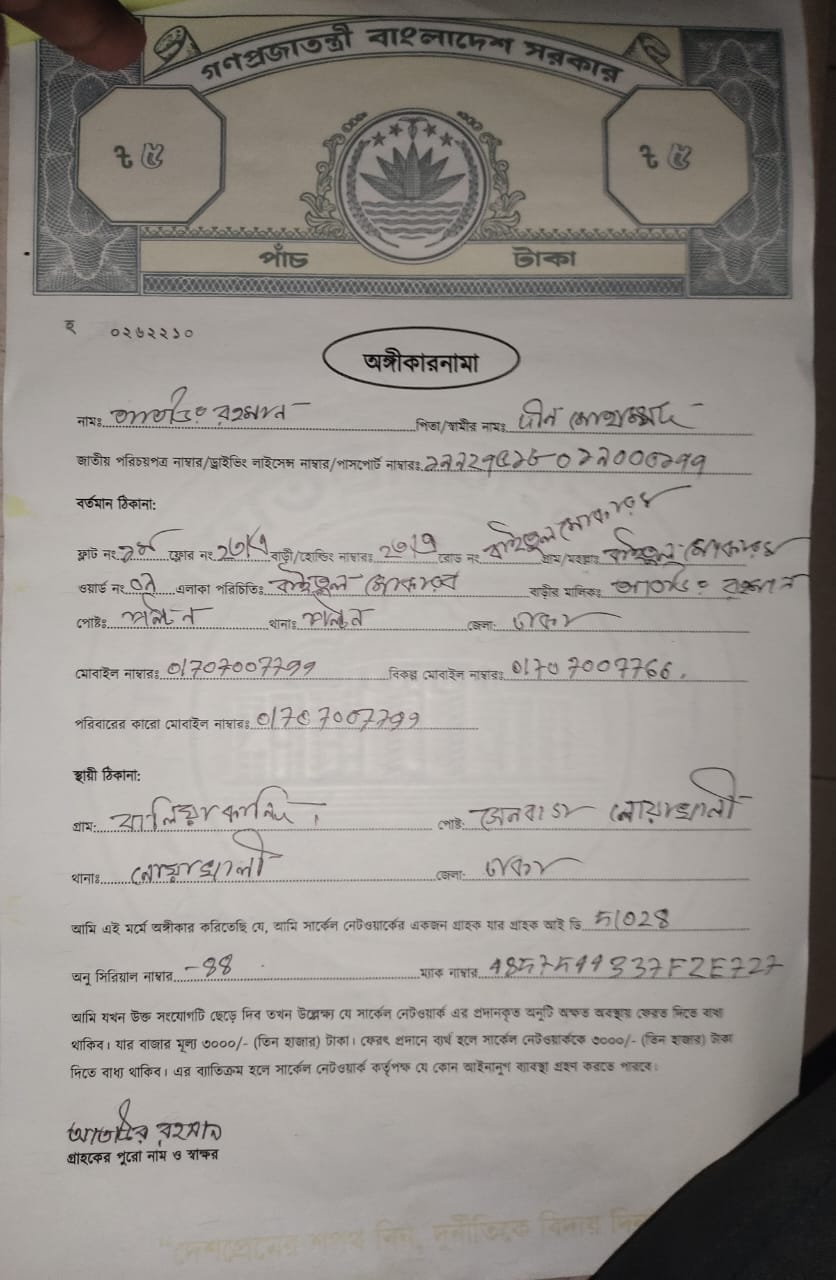 গণপ্রজাতন্ত্রী বাংলাদেশ সরকার
৳ ৫ ৳ ৫
পাঁচ টাকা
হ ০২৬২২১০
অঙ্গীকারনামা
নামঃ রহমান পিতা/স্বামীর নামঃ দীন মোহাম্মদ
জাতীয় পরিচয়পত্র নাম্বার/ড্রাইভিং লাইসেন্স নাম্বার/পাসপোর্ট নাম্বারঃ
বর্তমান ঠিকানা:
ফ্লাট নং ফ্লোর নং বাড়ী/হোল্ডিং নাম্বারঃ রোড নং বাইতুল মোকারম গ্রাম/মহল্লাঃ বাইতুল মোকারম
ওয়ার্ড নং এলাকা পরিচিতিঃ বাইতুল মোকারম বাড়ীর মালিকঃ রহমান
পোষ্টঃ পল্টন থানাঃ পল্টন জেলা: ঢাকা
মোবাইল নাম্বারঃ 01707007799 বিকল্প মোবাইল নাম্বারঃ 01707007766.
পরিবারের কারো মোবাইল নাম্বারঃ 01707007799
স্থায়ী ঠিকানা:
গ্রাম: পোষ্ট: সেনবাগ নোয়াখালী
থানাঃ নোয়াখালী জেলা: ঢাকা
আমি এই মর্মে অঙ্গীকার করিতেছি যে, আমি সার্কেল নেটওয়ার্কের একজন গ্রাহক যার গ্রাহক আই ডি 51028
অনু সিরিয়াল নাম্বার -88 ম্যাক নাম্বার
আমি যখন উক্ত সংযোগটি ছেড়ে দিব তখন উল্লেক্ষ্য যে সার্কেল নেটওয়ার্ক এর প্রদানকৃত অনুটি অক্ষত অবস্থায় ফেরত দিতে বাধ্য
থাকিব। যার বাজার মূল্য ৩০০০/- (তিন হাজার) টাকা। ফেরৎ প্রদানে ব্যর্থ হলে সার্কেল নেটওয়ার্ককে ৩০০০/- (তিন হাজার) টাকা
দিতে বাধ্য থাকিব। এর ব্যতিক্রম হলে সার্কেল নেটওয়ার্ক কর্তৃপক্ষ যে কোন আইনানুগ ব্যবস্থা গ্রহন করতে পারবে।
রহমান
গ্রাহকের পুরো নাম ও স্বাক্ষর
"দেশপ্রেমের শপথ নিন, দুর্নীতিকে বিদায় দিন